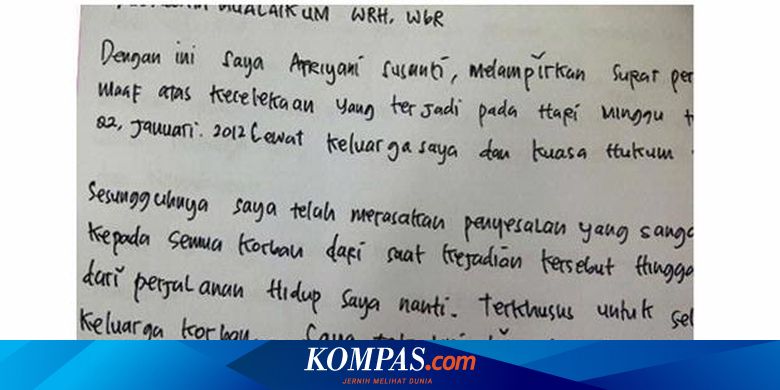 MUALAIKUM WRH, WBR
Dengan ini saya Afriyani Susanti, melampirkan surat per
Maaf atas kecelekaan yang terjadi pada Hari Minggu t
22, Januari. 2012 Lewat keluarga saya dan kuasa Hukum
Sesungguhnya saya telah merasakan penyesalan yang sanga
kepada semua korban dari saat kejadian tersebut Hingga
dari perjalanan Hidup saya nanti. Terkhusus untuk sel
keluarga korban.
KOMPAS.com
JERNIH MELIHAT DUNIA